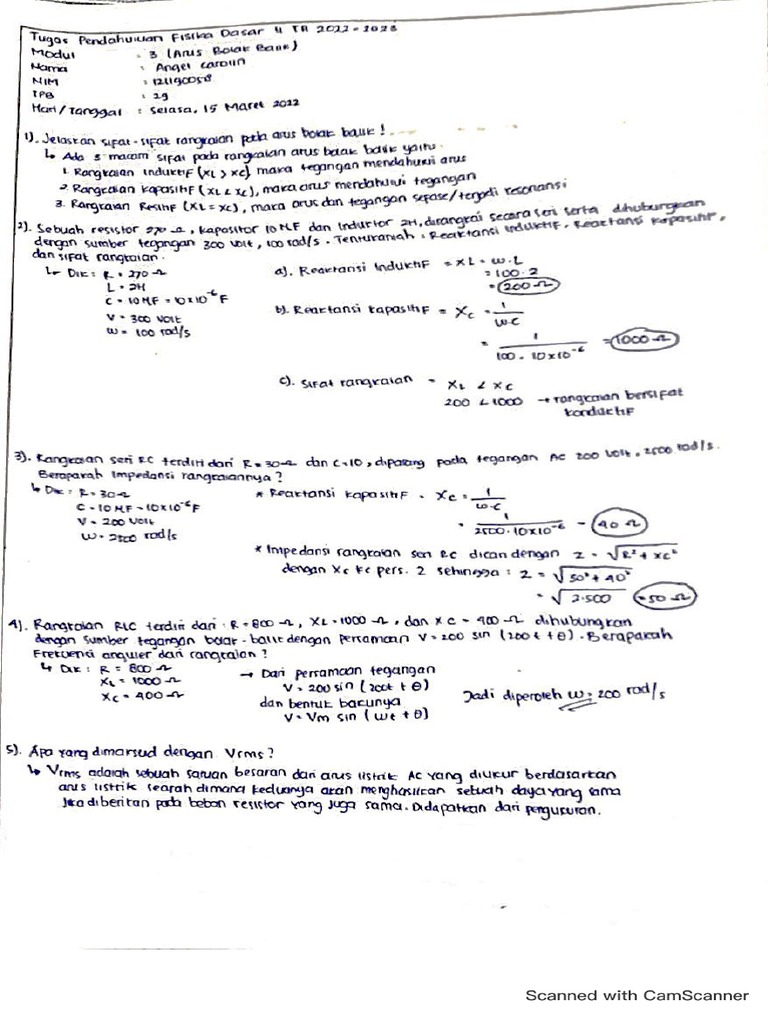 Tugas Pendahuluan Fisika Dasar II TA 2022-2023
Modul : 3 (Arus Bolak Balik)
Nama : Angel Carolin
NIM : 121190058
TPB : 29
Hari/Tanggal : Selasa, 15 Maret 2022
1). Jelaskan sifat-sifat rangkaian pada arus bolak balik!
↳ Ada 3 macam sifat pada rangkaian arus bolak balik yaitu.
1. Rangkaian Induktif (XL > XC) maka tegangan mendahului arus
2. Rangkaian Kapasitif (XL < XC), maka arus mendahului tegangan
3. Rangkaian Resitif (XL = XC), maka arus dan tegangan sefase/terjadi resonansi
2). Sebuah resistor 270 Ω, kapasitor 10 MF dan Induktor 2H, dirangkai secara seri serta dihubungkan
dengan sumber tegangan 300 volt, 100 rad/s. Tentukanlah : Reaktansi Induktif, Reaktansi Kapasitif,
dan sifat rangkaian.
↳ Dik : R = 270 Ω
L = 2H
C = 10 MF = 10x10⁻⁶ F
V = 300 Volt
ω = 100 rad/s
a). Reaktansi Induktif = XL = ω.L
= 100.2
= 200 Ω
b). Reaktansi Kapasitif = Xc = 1/ω.C
= 1/100 . 10x10⁻⁶ = 1000 Ω
c). Sifat rangkaian = XL < XC
200 < 1000 → rangkaian bersifat
konduktif
3). Rangkaian seri RC terdiri dari R = 30 Ω dan C = 10, dipasang pada tegangan AC 200 Volt, 2500 rad/s.
Berapakah Impedansi rangkaiannya?
↳ Dik : R = 30 Ω
C = 10 MF = 10x10⁻⁶ F
V = 200 Volt
ω = 2500 rad/s
* Reaktansi kapasitif = Xc = 1/ω.C
= 1/2500.10x10⁻⁶ = 40 Ω
* Impedansi rangkaian seri RC dicari dengan Z = √R² + XC²
dengan Xc ke pers. 2 sehingga : Z = √30² + 40²
= √2.500 = 50 Ω
4). Rangkaian RLC terdiri dari : R = 800 Ω, XL = 1000 Ω, dan XC = 400 Ω dihubungkan
dengan sumber tegangan bolak-balik dengan persamaan V = 200 sin (200t + θ). Berapakah
Frekuensi anguler dari rangkaian?
↳ Dik : R = 800 Ω
XL = 1000 Ω
Xc = 400 Ω
→ Dari persamaan tegangan
V = 200 sin (200t + θ)
dan bentuk bakunya
V = Vm sin (ωt + θ)
Jadi diperoleh ω = 200 rad/s
5). Apa yang dimaksud dengan Vrms?
↳ Vrms adalah sebuah satuan besaran dari arus listrik AC yang diukur berdasarkan
arus listrik searah dimana keduanya akan menghasilkan sebuah daya yang sama
jika diberikan pada beban resistor yang juga sama. Didapatkan dari pengukuran.
Scanned with CamScanner